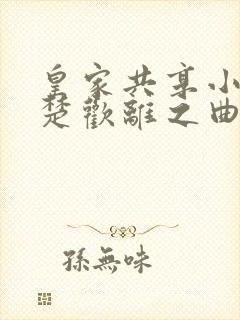 皇家共享小
楚歡離之曲
孫無味